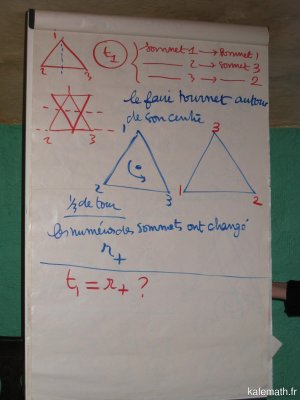 1
2 3
t₁ { sommet 1 → sommet 1
—— 2 → sommet 3
—— 3 → —— 2
1
2 3
le faire tourner autour
de son centre
1
2 3
3
1 2
1/3 de tour
les numéros des sommets ont changé
r+
t₁ = r+ ?
kafemath.fr